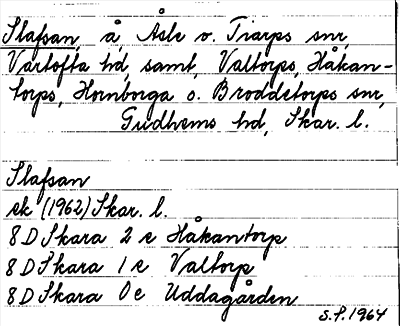 Slafsan, å Åsle o. Tiarps snr,
Vartofta hd, samt, Valtorps, Håkan-
torps, Hornborga o. Broddetorps snr,
Gudhems hd, Skar. l.
Slafsan
ek (1962) Skar. l.
8 D Skara 2 e Håkantorp
8 D Skara 1 e Valtorp
8 D Skara 0 e Uddagården
S.P. 1964